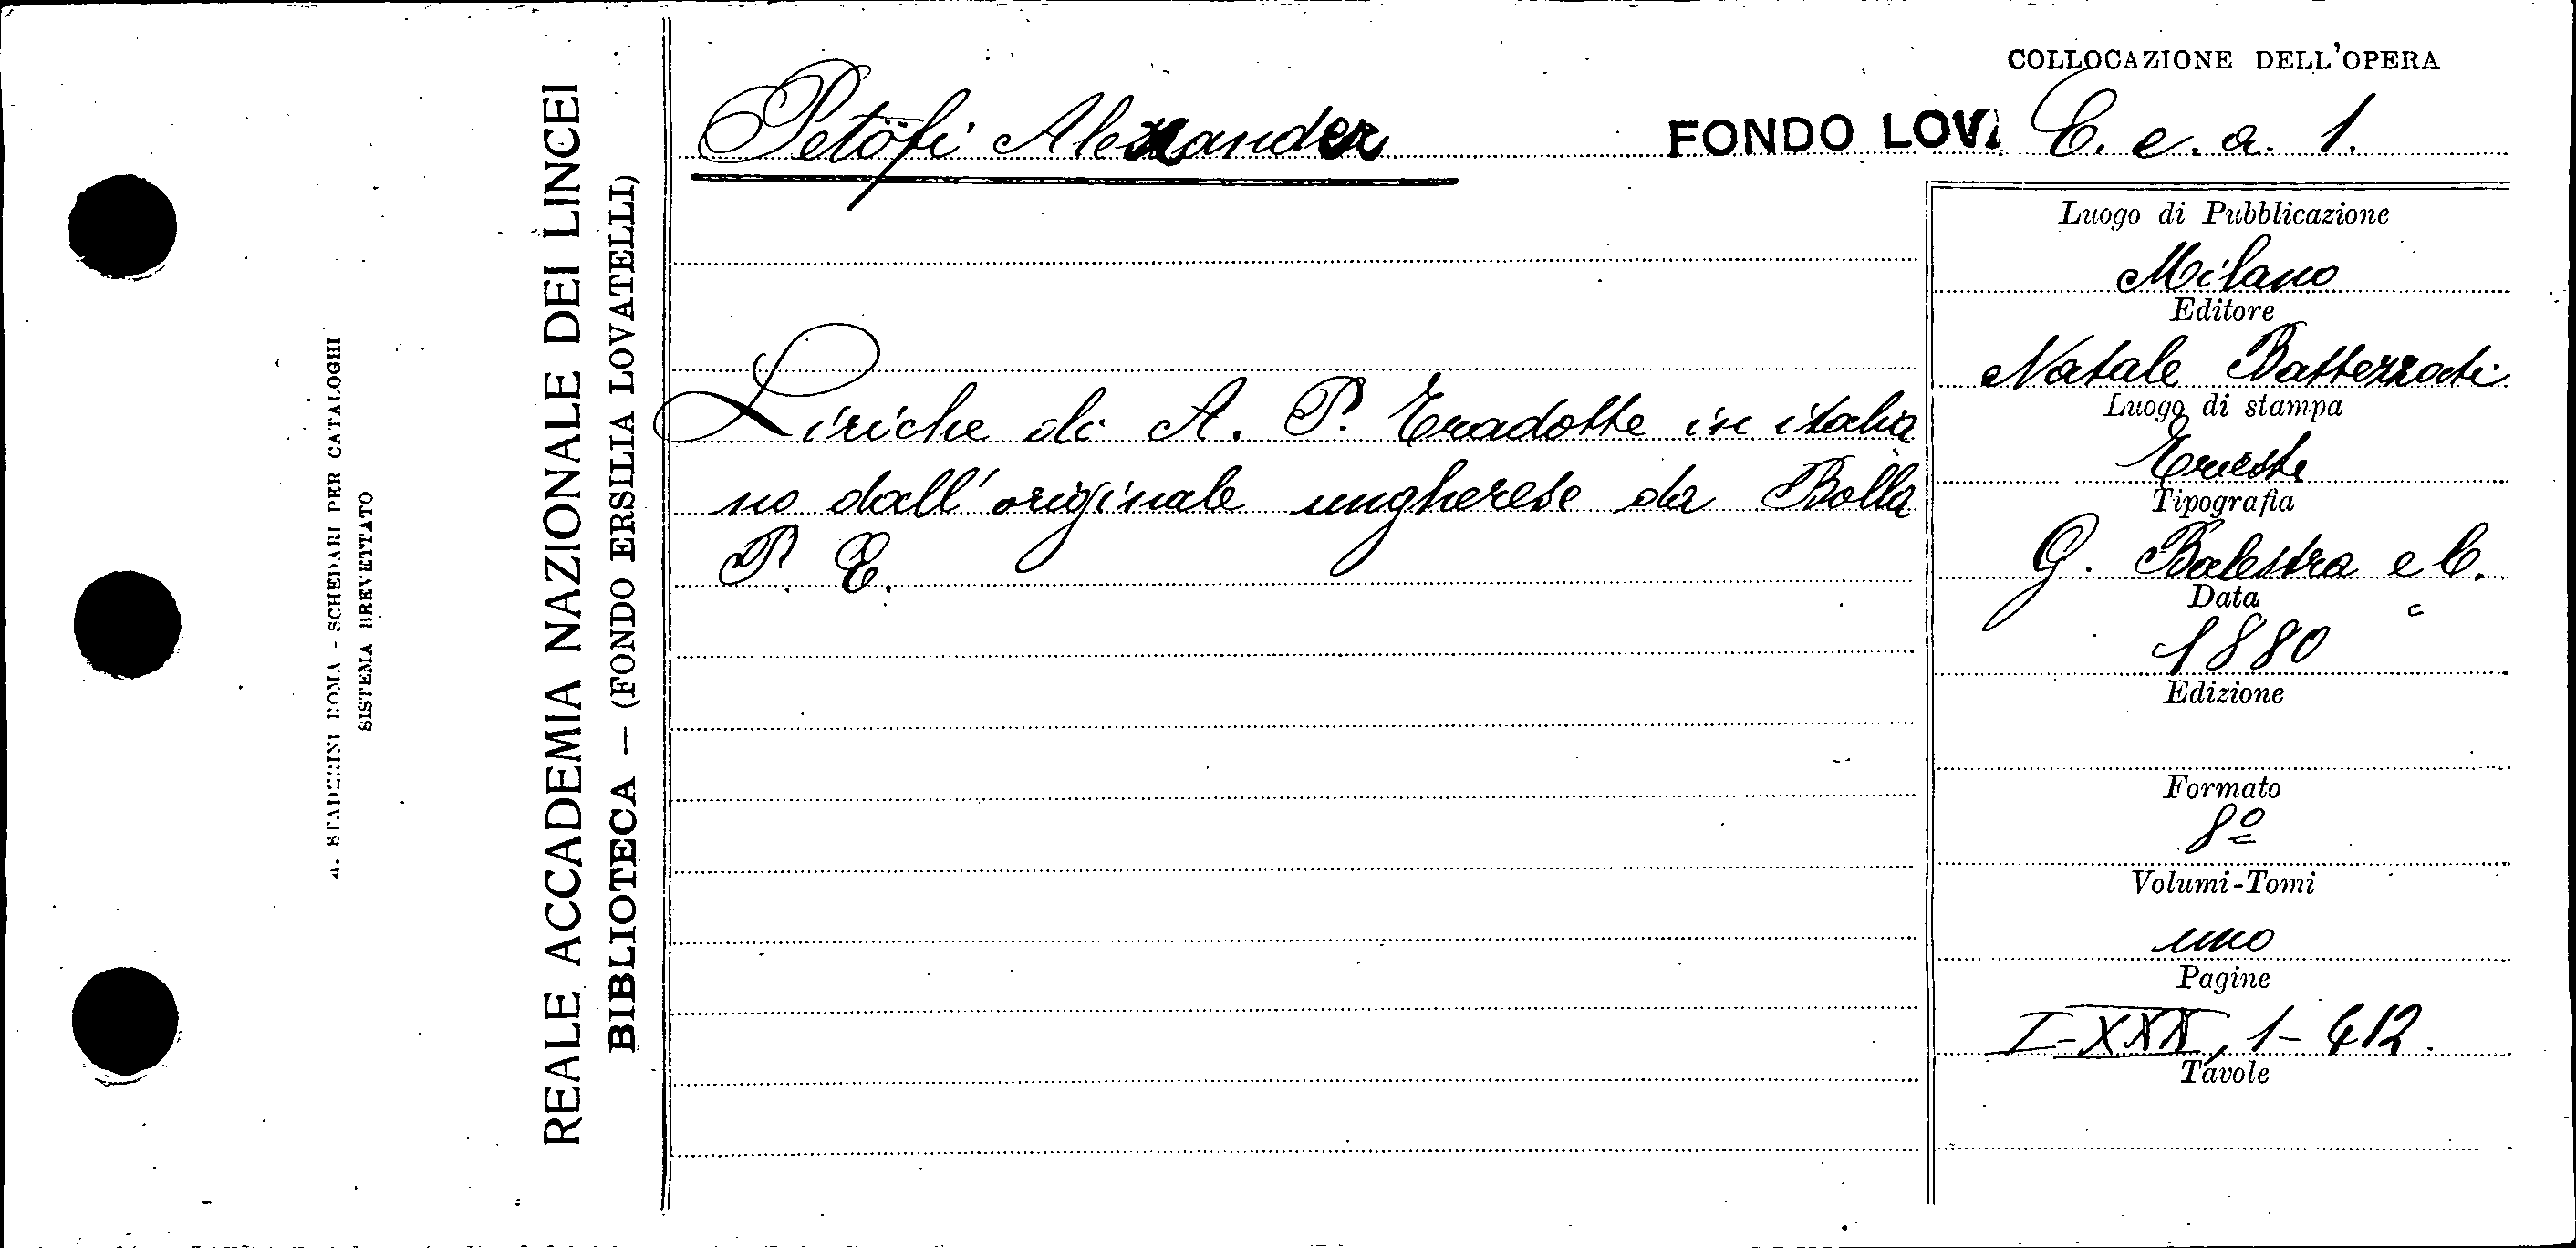 COLLOCAZIONE DELL'OPERA
Petöfi Alexander
FONDO LOV. C. e. a. 1.
Luogo di Pubblicazione
Milano
Editore
Natale Battezzati
Luogo di stampa
Trieste
Tipografia
G. Balestra e C.
Data
1880
Edizione
Formato
8º
Volumi-Tomi
uno
Pagine
I-XXX, 1-412.
Tavole
Liriche di A. P. Tradotte in italia
no dall'originale ungherese da Bolla
P. E.
REALE ACCADEMIA NAZIONALE DEI LINCEI
BIBLIOTECA — (FONDO ERSILIA LOVATELLI)
A. STADERINI ROMA - SCHEDARI PER CATALOGHI
SISTEMA BREVETTATO